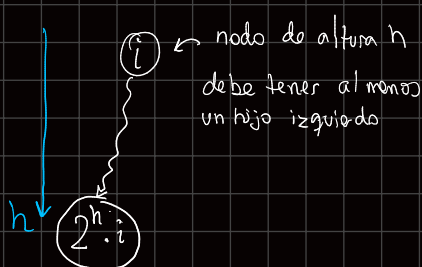 i
nodo de altura h
debe tener al menos
un hijo izquiedo
h
2^h · i